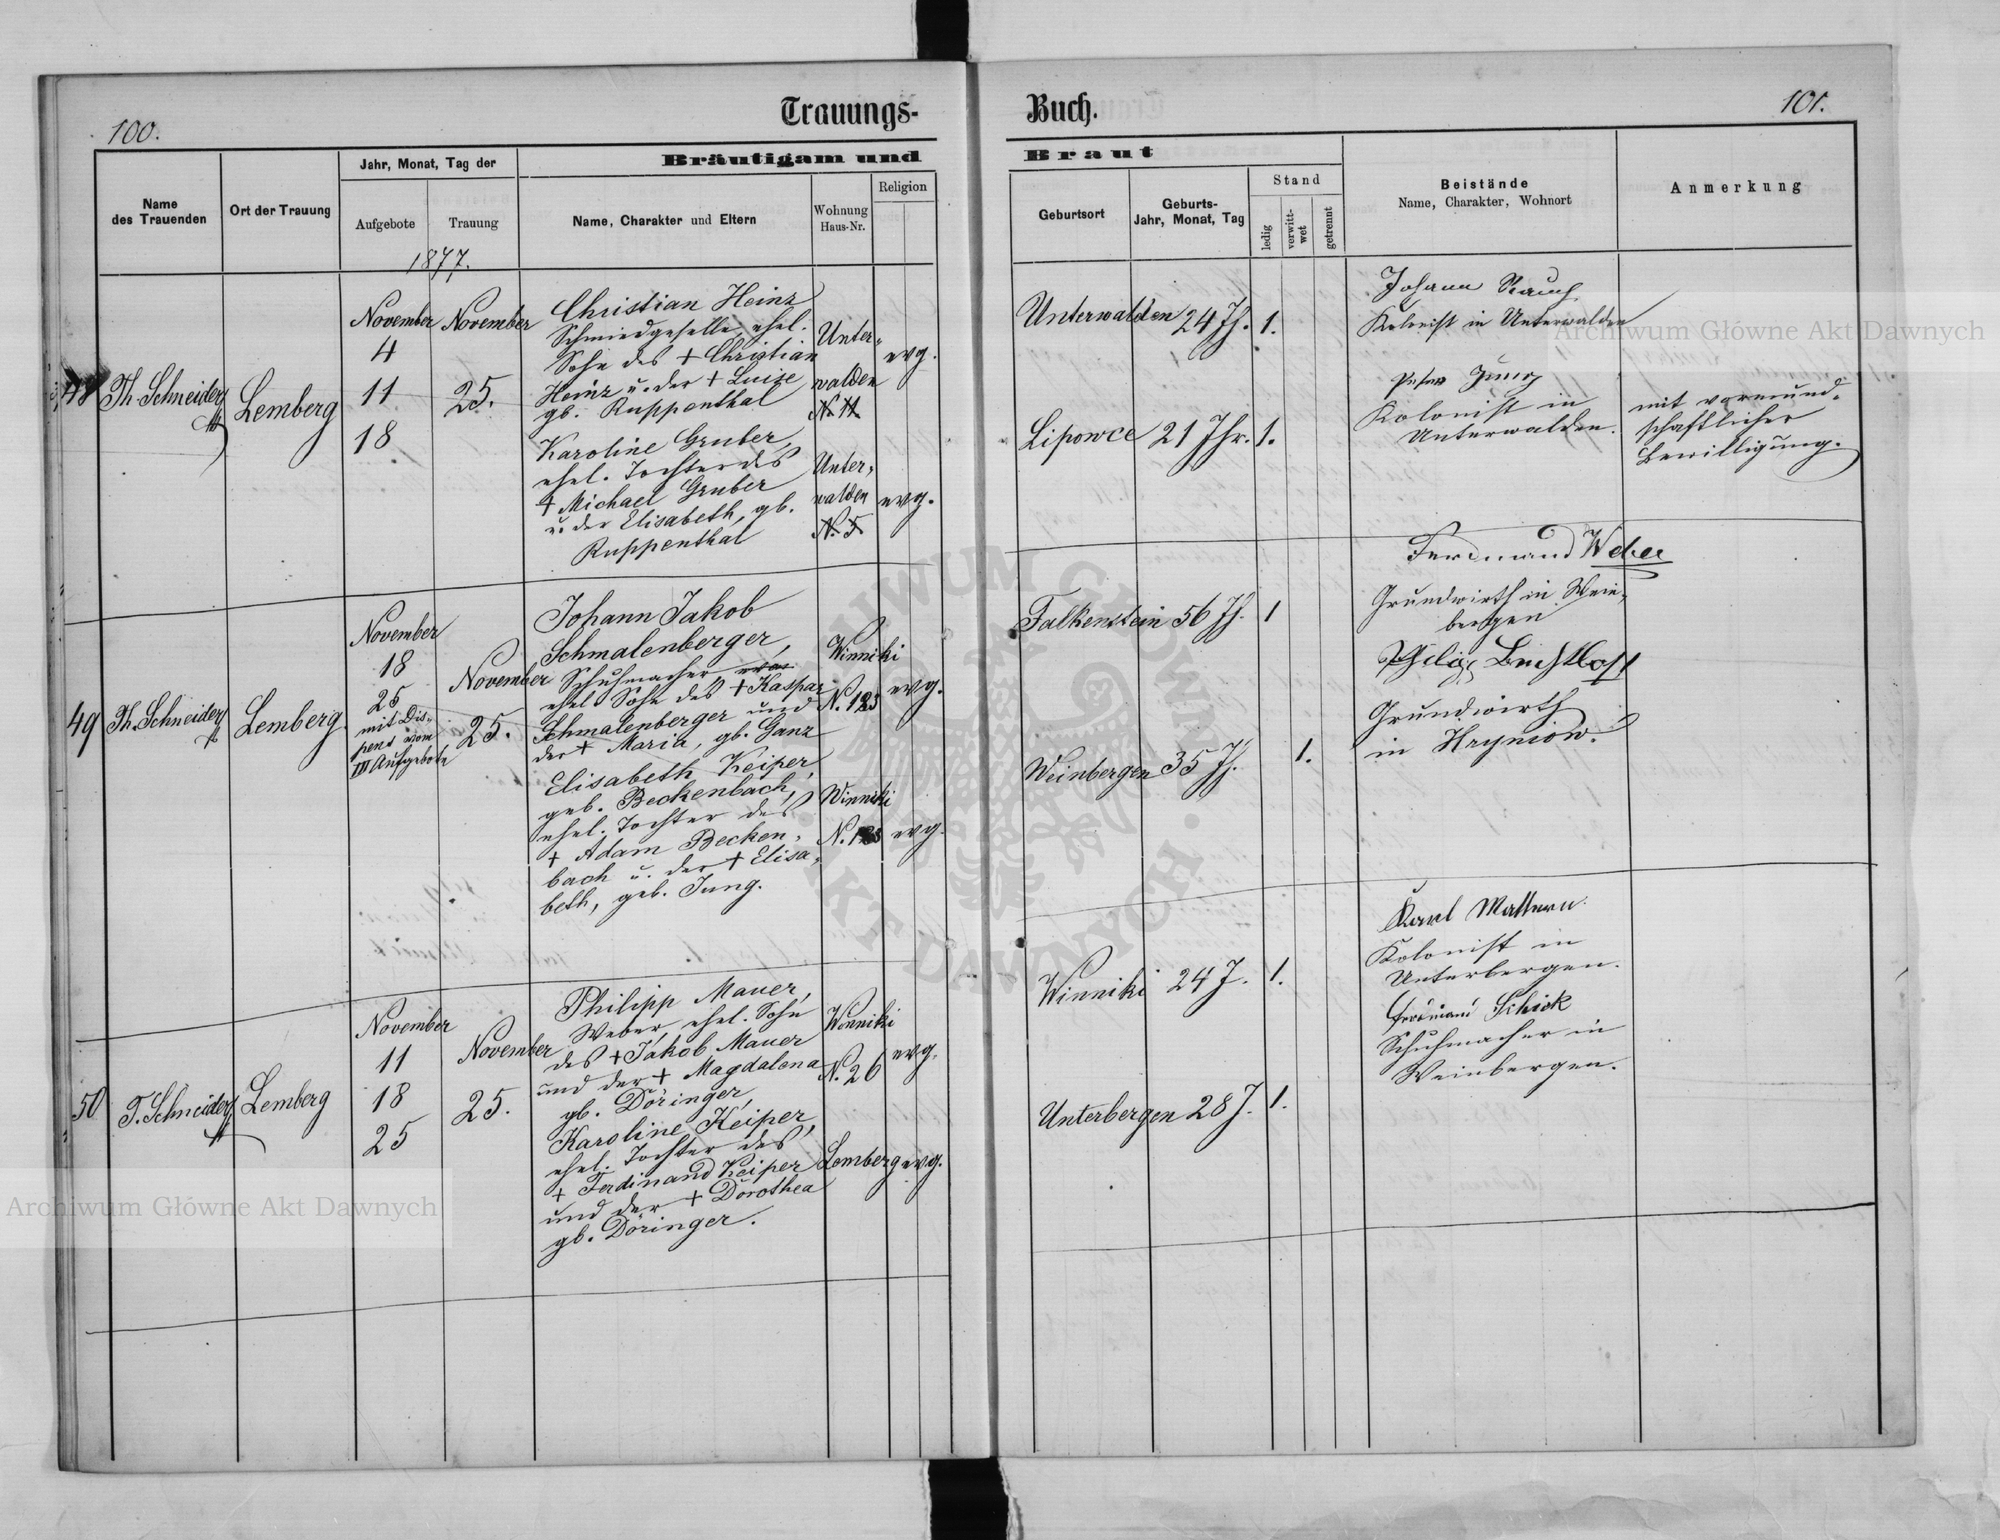 100.
Trauungs-
Buch.
101.
Name
des Trauenden
Ort der Trauung
Jahr, Monat, Tag der
Aufgebote
Trauung
Bräutigam und
Name, Charakter und Eltern
Wohnung
Haus-Nr.
Religion
Braut
Geburtsort
Geburts-
Jahr, Monat, Tag
Stand
ledig
verwitt-
wet
getrennt
Beistände
Name, Charakter, Wohnort
Anmerkung
1877.
48
Th. Schneider
Lemberg
November
4
11
18
November
25.
Christian Heinz
Schmiedgeselle, ehel.
Sohn des + Christian
Heinz u. der + Luise
gb. Ruppenthal
Unter-
walden
N. 11
evg.
Karoline Gruber,
ehel. Tochter des
+ Michael Gruber
u. der Elisabeth, gb.
Ruppenthal
Unter-
walden
N. 5
evg.
Unterwalden
24 Jh.
1.
Lipowce
21 Jhr.
1.
Johann Rauch
Kolonist in Unterwalden
Peter Jung
Kolonist in
Unterwalden.
mit vormund-
schaftlicher
Bewilligung.
49
Th. Schneider
Lemberg.
November
18
25
mit Dis-
pens vom
III Aufgebote
November
25.
Johann Jakob
Schmalenberger,
Schuhmacher
ehel Sohn des + Kaspar
Schmalenberger und
der + Maria, gb. Ganz
Winniki
N. 123
evg.
Elisabeth Keiper,
geb. Beckenbach,
ehel. Tochter des
+ Adam Becken-
bach u. der + Elisa-
beth, geb. Jung.
Winniki
evg.
Falkenstein
56 Jh.
1
Weinbergen
35 Jh.
1.
Ferdinand Weber
Grundwirth in Wein-
bergen
Grundwirth
in Hryniow.
50
T. Schneider
Lemberg
November
11
18
25
November
25.
Philipp Mauer,
Weber, ehel. Sohn
des + Jakob Mauer
und der + Magdalena
gb. Döringer,
Winniki
N. 26
evg.
Karoline Keiper,
ehel. Tochter des
+ Ferdinand Keiper
und der + Dorothea
gb. Döringer.
Lemberg
evg.
Winniki
24 J.
1.
Unterbergen
28 J.
1.
Karl Mattern
Kolonist in
Unterbergen.
Schick
Schuhmacher in
Weinbergen.
Archiwum Główne Akt Dawnych
Archiwum Główne Akt Dawnych